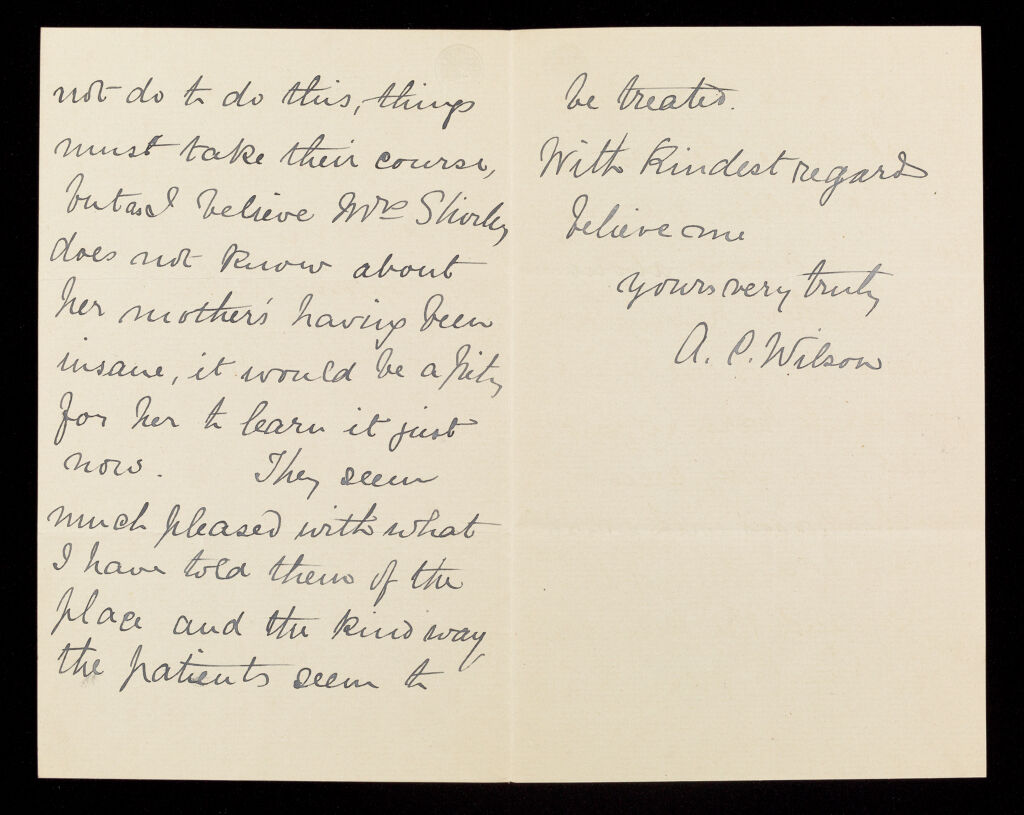 not do to do this, things
must take their course,
but as I believe Mrs Shorley
does not know about
her mother's having been
insane, it would be a pity
for her to learn it just
now. They seem
much pleased with what
I have told them of the
place and the kind way
the patients seem to
be treated.
With kindest regards
believe me
yours very truly
A. C. Wilson